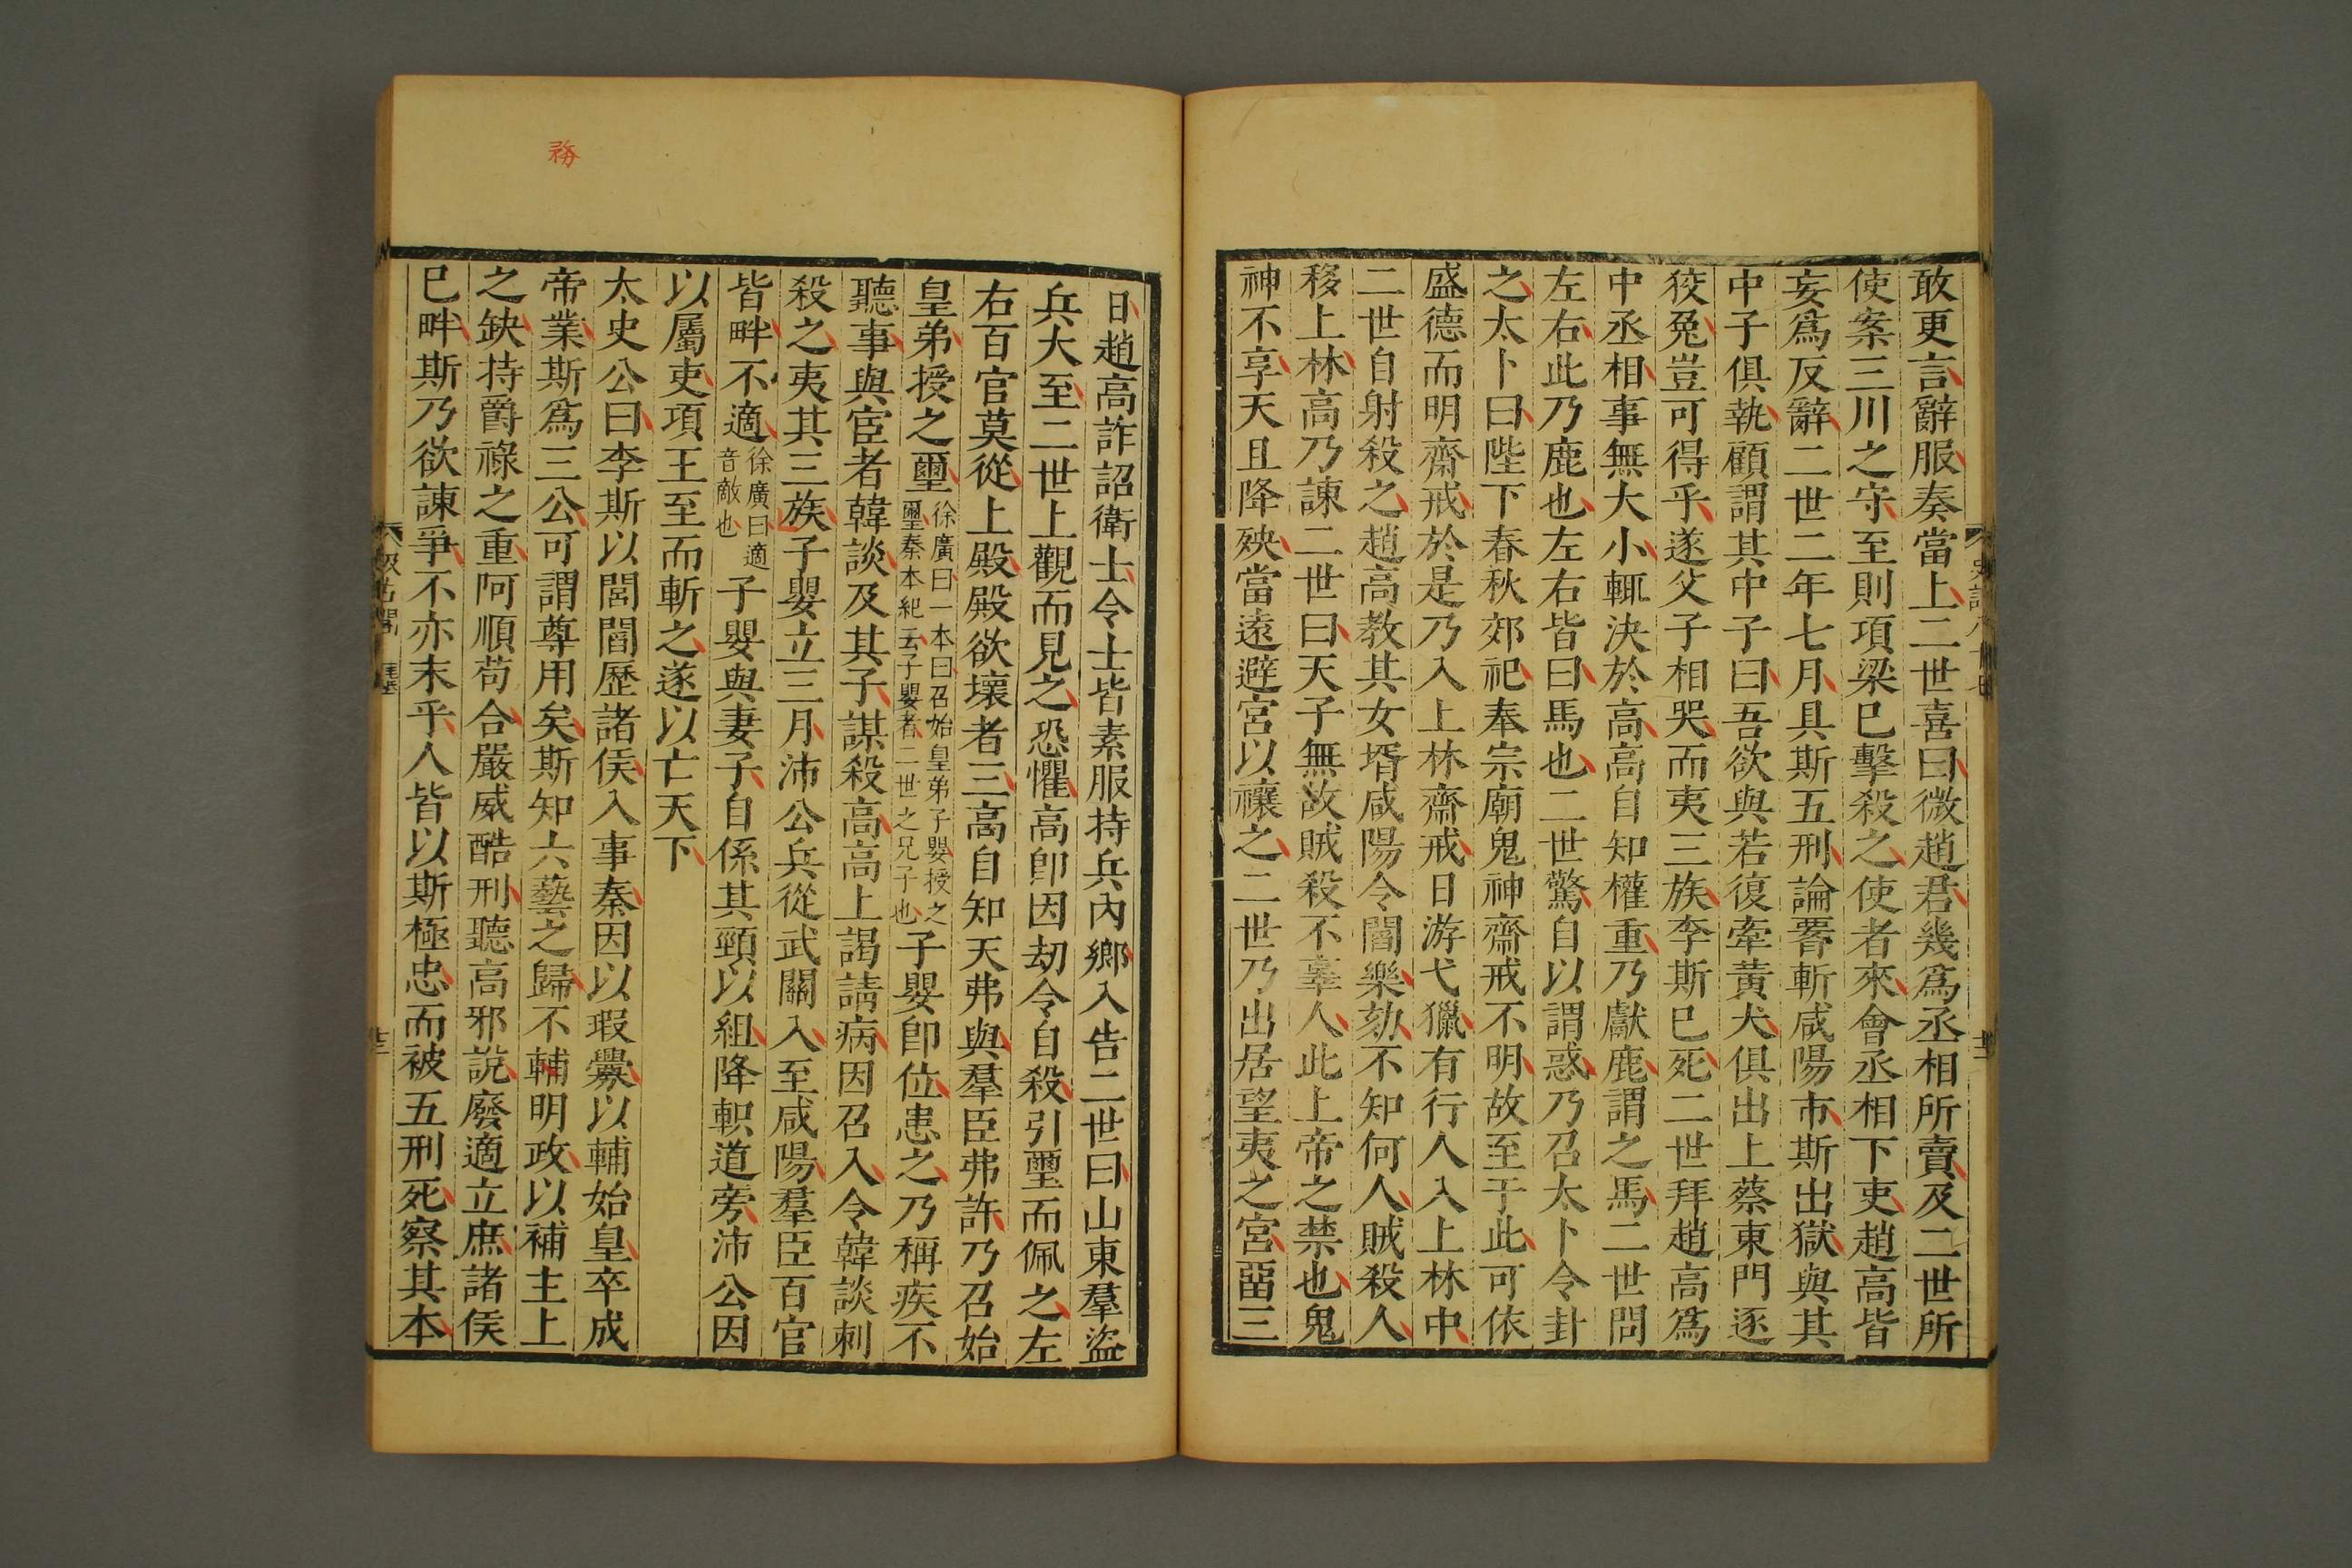 敢更言辭服奏當上二世喜曰微趙君幾爲丞相所賣及二世所
使案三川之守至則項梁巳擊殺之使者來會丞相下吏趙高皆
妄爲反辭二世二年七月具斯五刑論腰斬咸陽市斯出獄與其
中子俱執顧謂其中子曰吾欲與若復牽黃犬俱出上蔡東門逐
狡兔豈可得乎遂父子相哭而夷三族李斯巳死二世拜趙高爲
中丞相事無大小輒決於高高自知權重乃獻鹿謂之馬二世問
左右此乃鹿也左右皆曰馬也二世驚自以謂惑乃召太卜令卦
之太卜曰陛下春秋郊祀奉宗廟鬼神齋戒不明故至于此可依
盛德而明齋戒於是乃入上林齋戒日游弋獵有行人入上林中
二世自射殺之趙高教其女壻咸陽令閻樂劾不知何人賊殺人
移上林高乃諫二世曰天子無故賊殺不辜人此上帝之禁也鬼
神不享天且降殃當遠避宮以禳之二世乃出居望夷之宮畱三
日趙高詐詔衛士令士皆素服持兵內鄉入告二世曰山東羣盜
兵大至二世上觀而見之恐懼高卽因劫令自殺引璽而佩之左
右百官莫從上殿殿欲壞者三高自知天弗與羣臣弗許乃召始
皇弟授之璽徐廣曰一本曰召始皇弟子嬰授之璽秦本紀云子嬰者二世之兄子也子嬰卽位患之乃稱疾不
聽事與宦者韓談及其子謀殺高高上謁請病因召入令韓談刺
殺之夷其三族子嬰立三月沛公兵從武關入至咸陽羣臣百官
皆畔不適徐廣曰適音敵也子嬰與妻子自係其頸以組降軹道旁沛公因
以屬吏項王至而斬之遂以亡天下
太史公曰李斯以閭閻歷諸侯入事秦因以瑕釁以輔始皇卒成
帝業斯爲三公可謂尊用矣斯知六藝之歸不輔明政以補主上
之缺持爵祿之重阿順苟合嚴威酷刑聽高邪說廢適立庶諸侯
巳畔斯乃欲諫爭不亦末乎人皆以斯極忠而被五刑死察其本